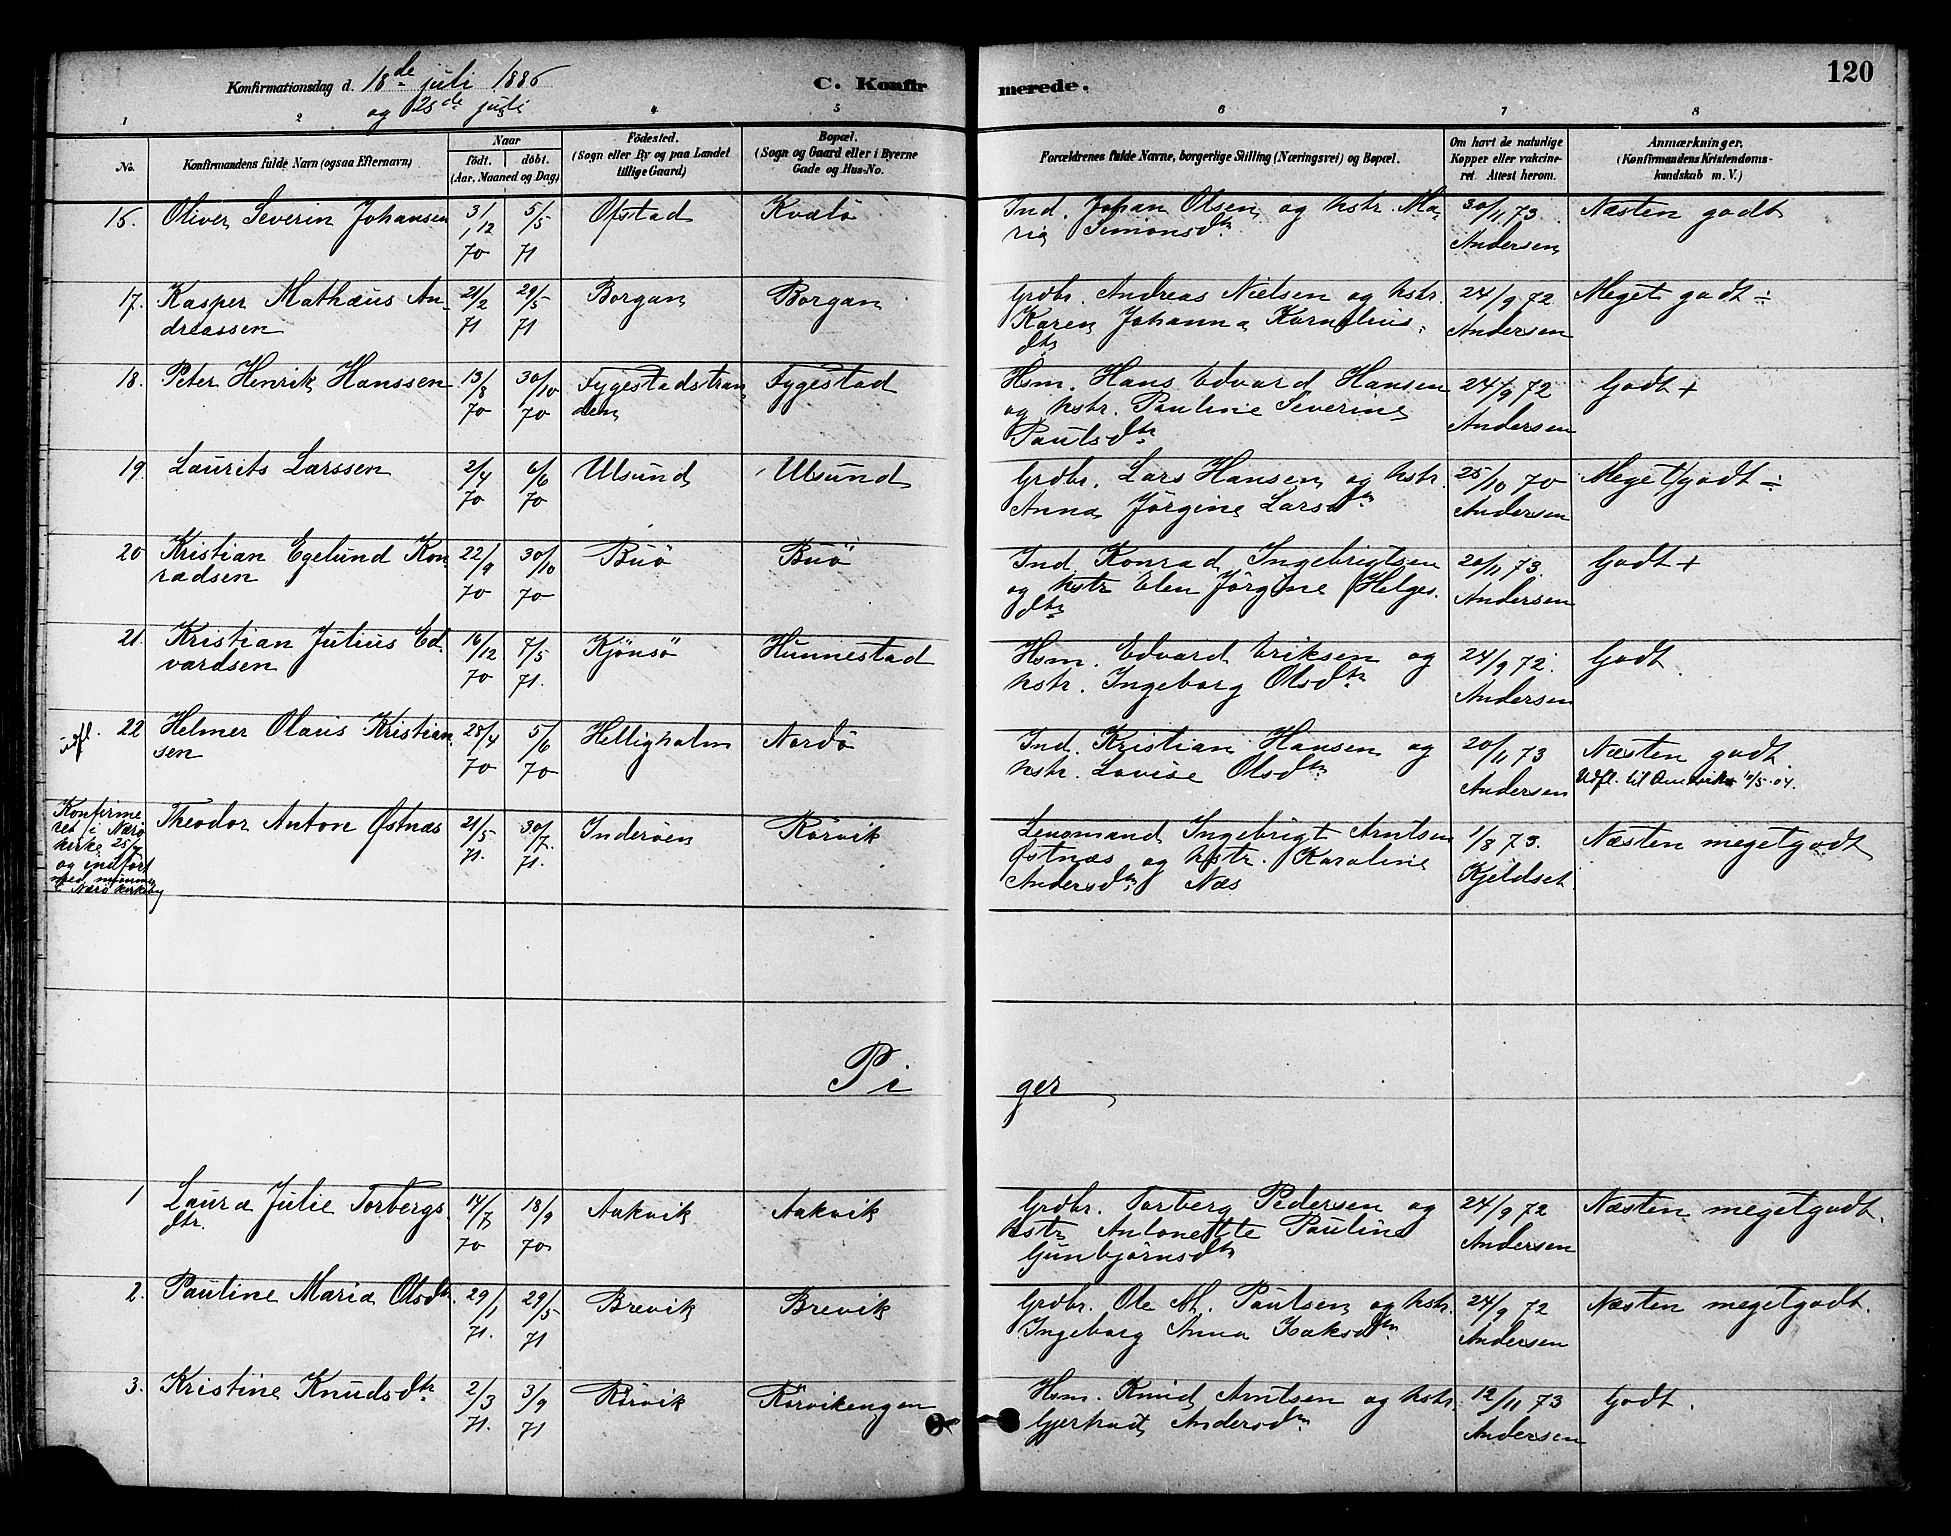 120
Konfirmationsdag d. 18de juli 1886
og 25de juli
C. Konfirmerede.
1 2 3 4 5 6 7 8
No. Konfirmandens fulde Navn (ogsaa Efternavn) Naar födt. döbt. (Aar, Maaned og Dag) Födested. (Sogn eller By og paa Landet tillige Gaard) Bopæl. (Sogn og Gaard eller i Byerne Gade og Hus-No. Forældrenes fulde Navne, borgerlige Stilling (Næringsvei) og Bopæl. Om havt de naturlige Kopper eller vakcineret. Attest herom. Anmærkninger. (Konfirmandens Kristendomskundskab m. V.)
16. Oliver Severin Johansen 3/12 70 5/5 71 Ofstad Kvalö Ind. Johan Olsen og hstr. Maria Simonsdtr 30/11 73. Andersen Næsten godt
17. Kasper Mathæus Andreassen 21/2 71 29/5 71 Borgan Borgan Grdbr. Andreas Nielsen og hstr. Karen Johanna Kornelius.dtr 24/9 72 Andersen Meget godt ÷
18. Peter Henrik Hanssen 13/8 70 30/10 70 Fygestadstranden Fygestad Hsm. Hans Edvard Hansen og hstr. Pauline Severine Paulsdtr 24/9 72 Andersen Godt +
19. Laurits Larssen 2/4 70 6/6 70 Ulsund Ulsund Grdbr. Lars Hansen og hstr. Anna Jörgine Larsdtr 25/10 70 Andersen Meget godt ÷
20 Kristian Egelund Konradsen 22/9 70 30/10 70 Buö Buö Ind. Konrad Ingebrigtsen og hstr Elen Jörgine Helges.dtr 20/11 73. Andersen Godt +
21. Kristian Julius Edvardsen 16/12 70 7/5 71. Kjönsö Hunnestad Hsm. Edvard Eriksen og hstr. Ingeborg Olsdtr 24/9 72. Andersen Godt.
udfl. 22 Helmer Olaus Kristiansen 28/4 70 5/6 70 Helligholm Nordö Ind. Kristian Hansen og hstr. Lovise Olsdtr 20/11 73 Andersen Næsten godt. Udfl. til Amerika 11/5.04.
Konfirmeret i Nærö kirke 25/7 og indfört med nummer i Nærö kirkebog Theodor Anton Östnæs 21/5 71. 30/7. 71. Inderöen Rörvik Lensmand Ingebrigt Arntsen Östnæs og hstr. Karoline Andersdtr. Næs 1/8 73. Kjeldset Næsten megetgodt
Piger
1 Laura Julie Torbergsdtr. 14/7 70 18/9 70 Aakvik Aakvik Grdbr. Torberg Pedersen og hstr Antonette Pauline Gunbjörnsdtr 24/9 72 Andersen Næsten megetgodt.
2. Pauline Maria Olsdtr. 29/1 71. 29/5 71 Brevik Brevik Grdbr. Ole M. Paulsen og hstr. Ingeborg Anna Isaksdtr 24/9 72 Andersen Næsten megetgodt.
3. Kristine Knudsdtr 2/3 71. 3/9 71 Rörvik Rörvikengen Hsm. Knud Arntsen og hstr. Gjertrud Andersdtr 12/11 73 Andersen Godt.